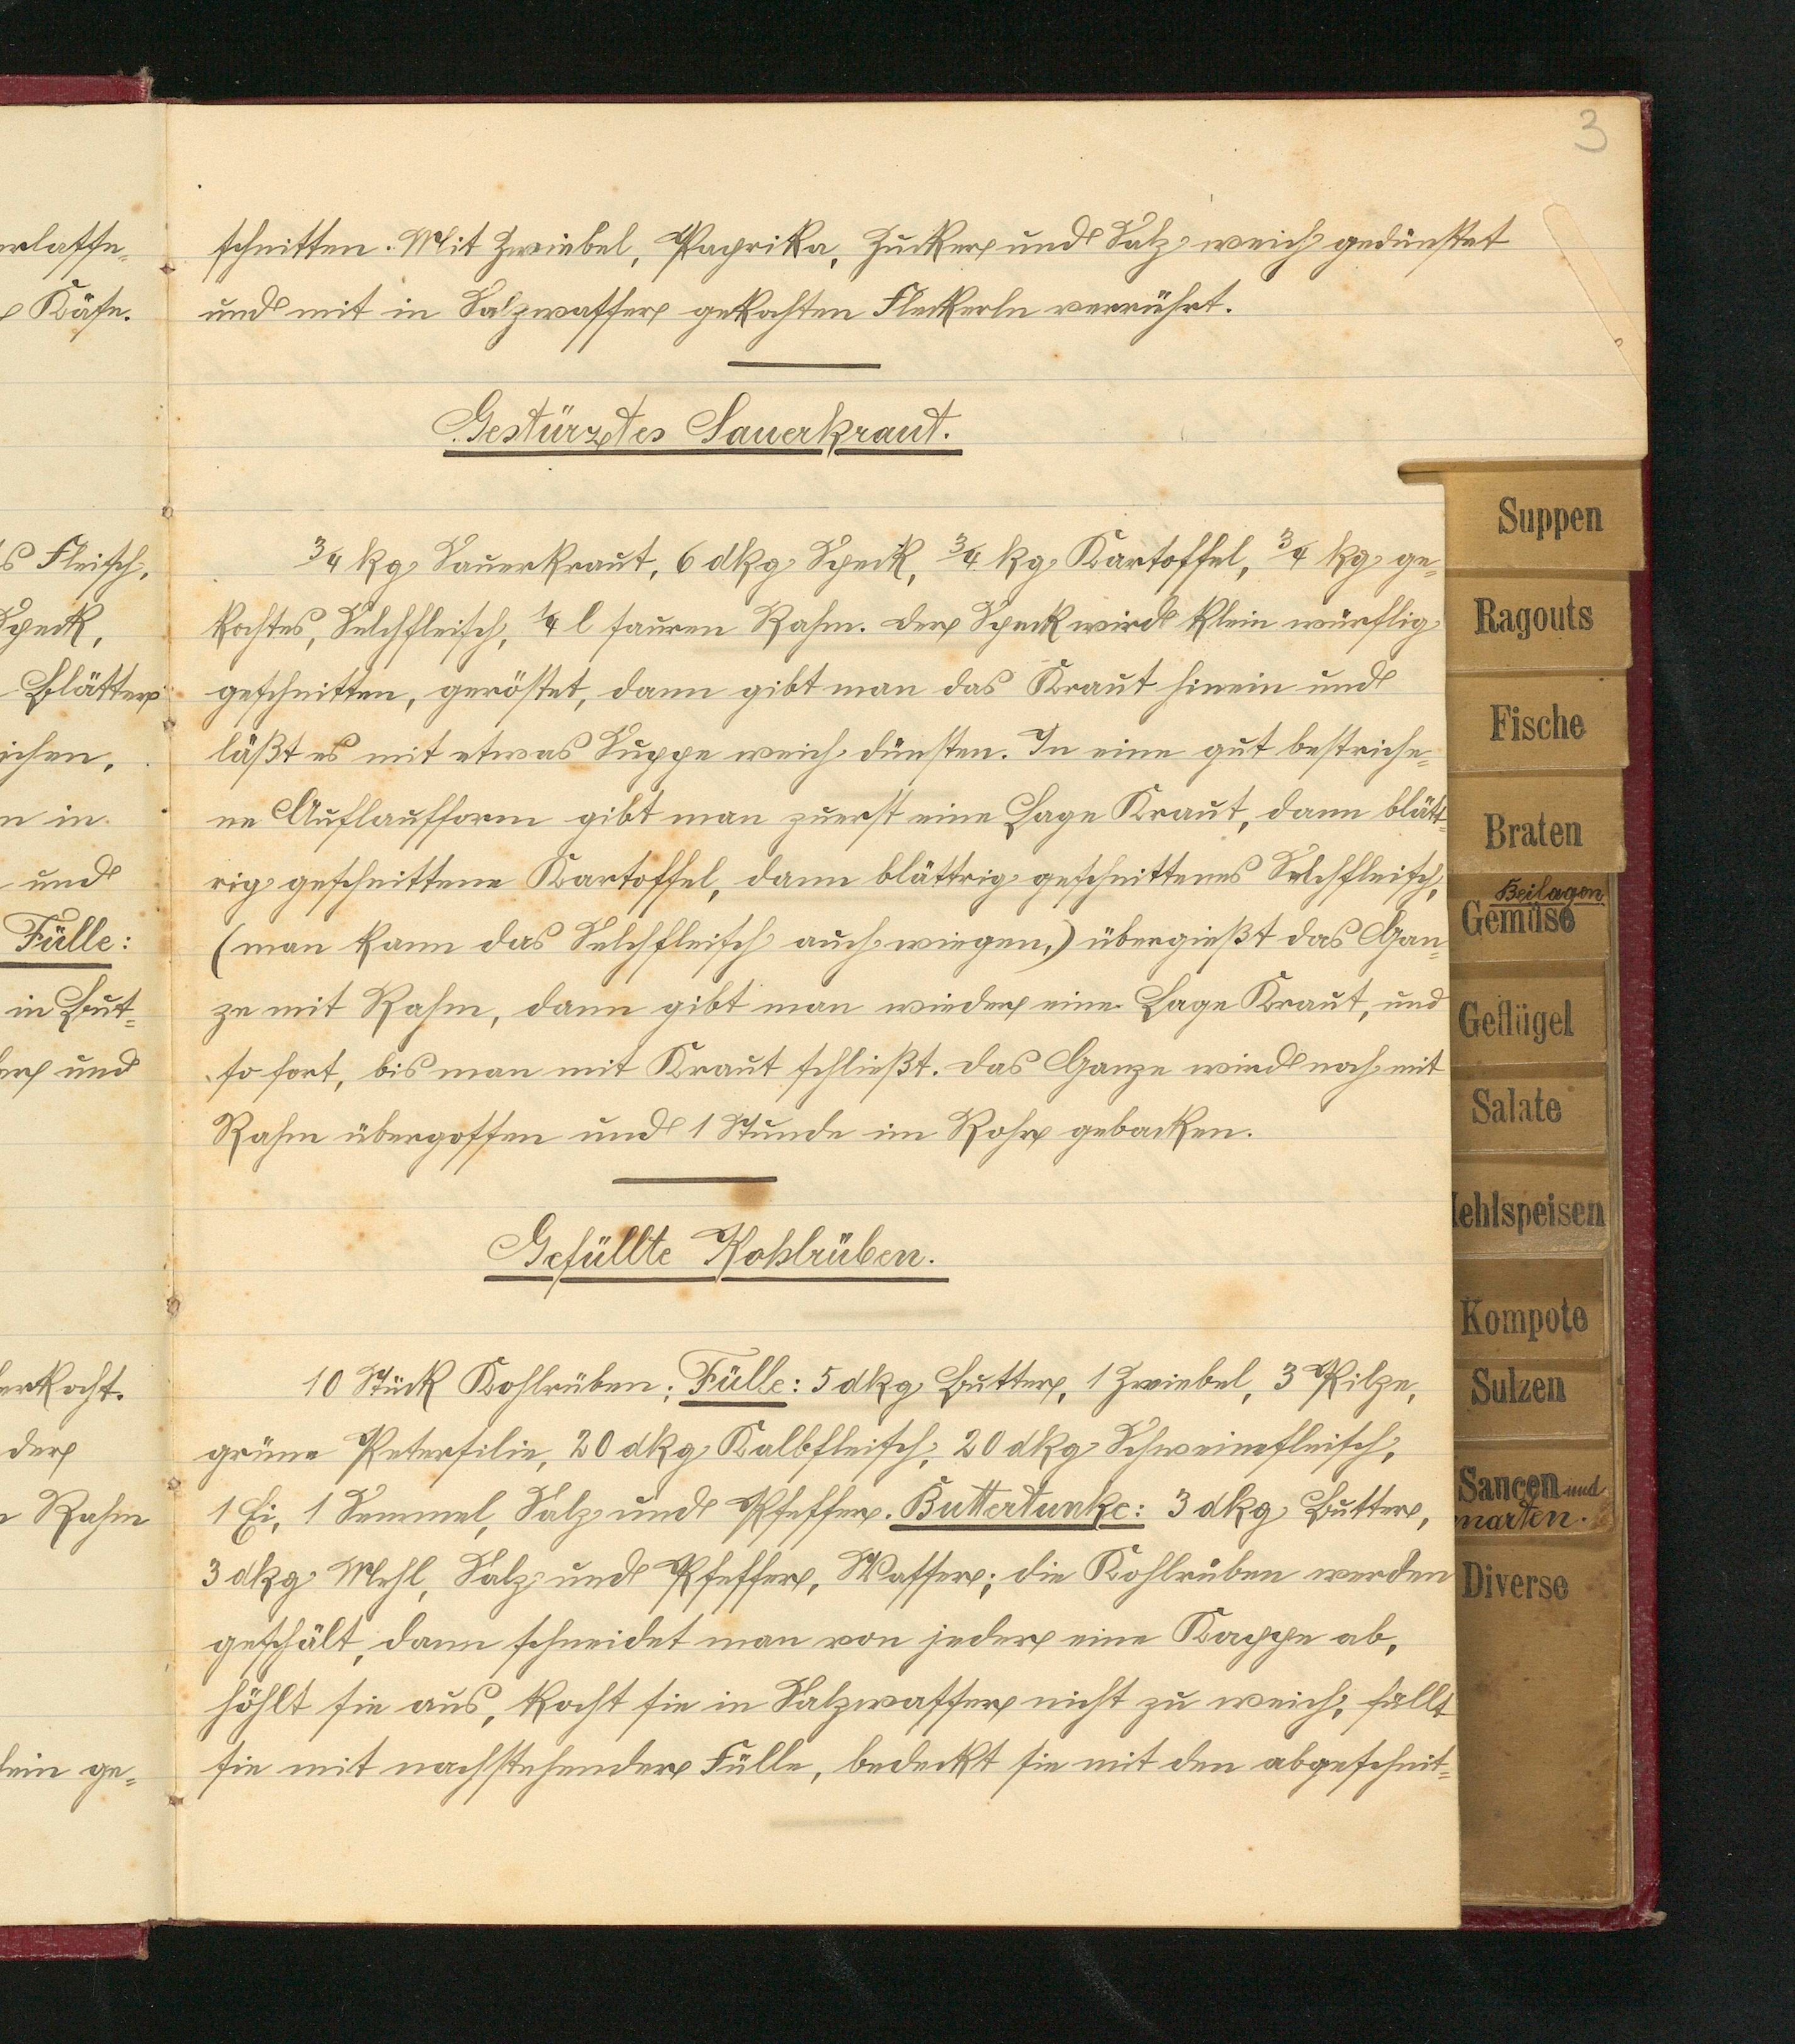 3
schnitten. Mit Zwiebel, Paprika, Zucker und Salz weich gedünstet
und mit in Salzwasser gekochten Fleckerln verrührt.
Gestürztes Sauerkraut.
3/4 kg Sauerkraut, 6 dkg Speck, 3/4 kg Kartoffel, 3/4 kg ge-
kochtes, Selchfleisch, 1/4 l sauren Rahm. Der Speck wird klein würflig
geschnitten, geröstet, dann gibt man das Kraut hinein und
läßt es mit etwas Suppe weich dünsten. In eine gut bestriche-
ne Auflaufform gibt man zuerst eine Lage Kraut, dann blätt-
rig geschnittene Kartoffel, dann blättrig geschnittenes Selchfleisch,
(man kann das Selchfleisch auch wiegen,) übergießt das Gan-
ze mit Rahm, dann gibt man wieder eine Lage Kraut, und
so fort, bis man mit Kraut schließt. Das Ganze wird noch mit
Rahm übergossen und 1 Stunde im Rohr gebacken.
Gefüllte Kohlrüben.
10 Stück Kohlrüben; Fülle: 5 dkg Butter, 1 Zwiebel, 3 Pilze,
grüne Petersilie, 20 dkg Kalbfleisch, 20 dkg Schweinefleisch,
1 Ei, 1 Semmel, Salz und Pfeffer. Buttertunke: 3 dkg Butter,
3 dkg Mehl, Salz und Pfeffer, Wasser; die Kohlrüben werden
geschält, dann schneidet man von jeder eine Kappe ab,
höhlt sie aus, kocht sie in Salzwasser nicht zu weich, füllt
sie mit nachstehender Fülle, bedeckt sie mit den abgeschnit-
erlasse-
Käse.
s Fleisch,
Speck,
Blätter
ichen,
n in
und
Fülle:
in But-
er und
erkocht.
der
Rahm
lein ge-
Suppen
Ragouts
Fische
Braten
Beilagen
Gemüse
Geflügel
Salate
ehlspeisen
Kompote
Sulzen
Saucen und
narten.
Diverse